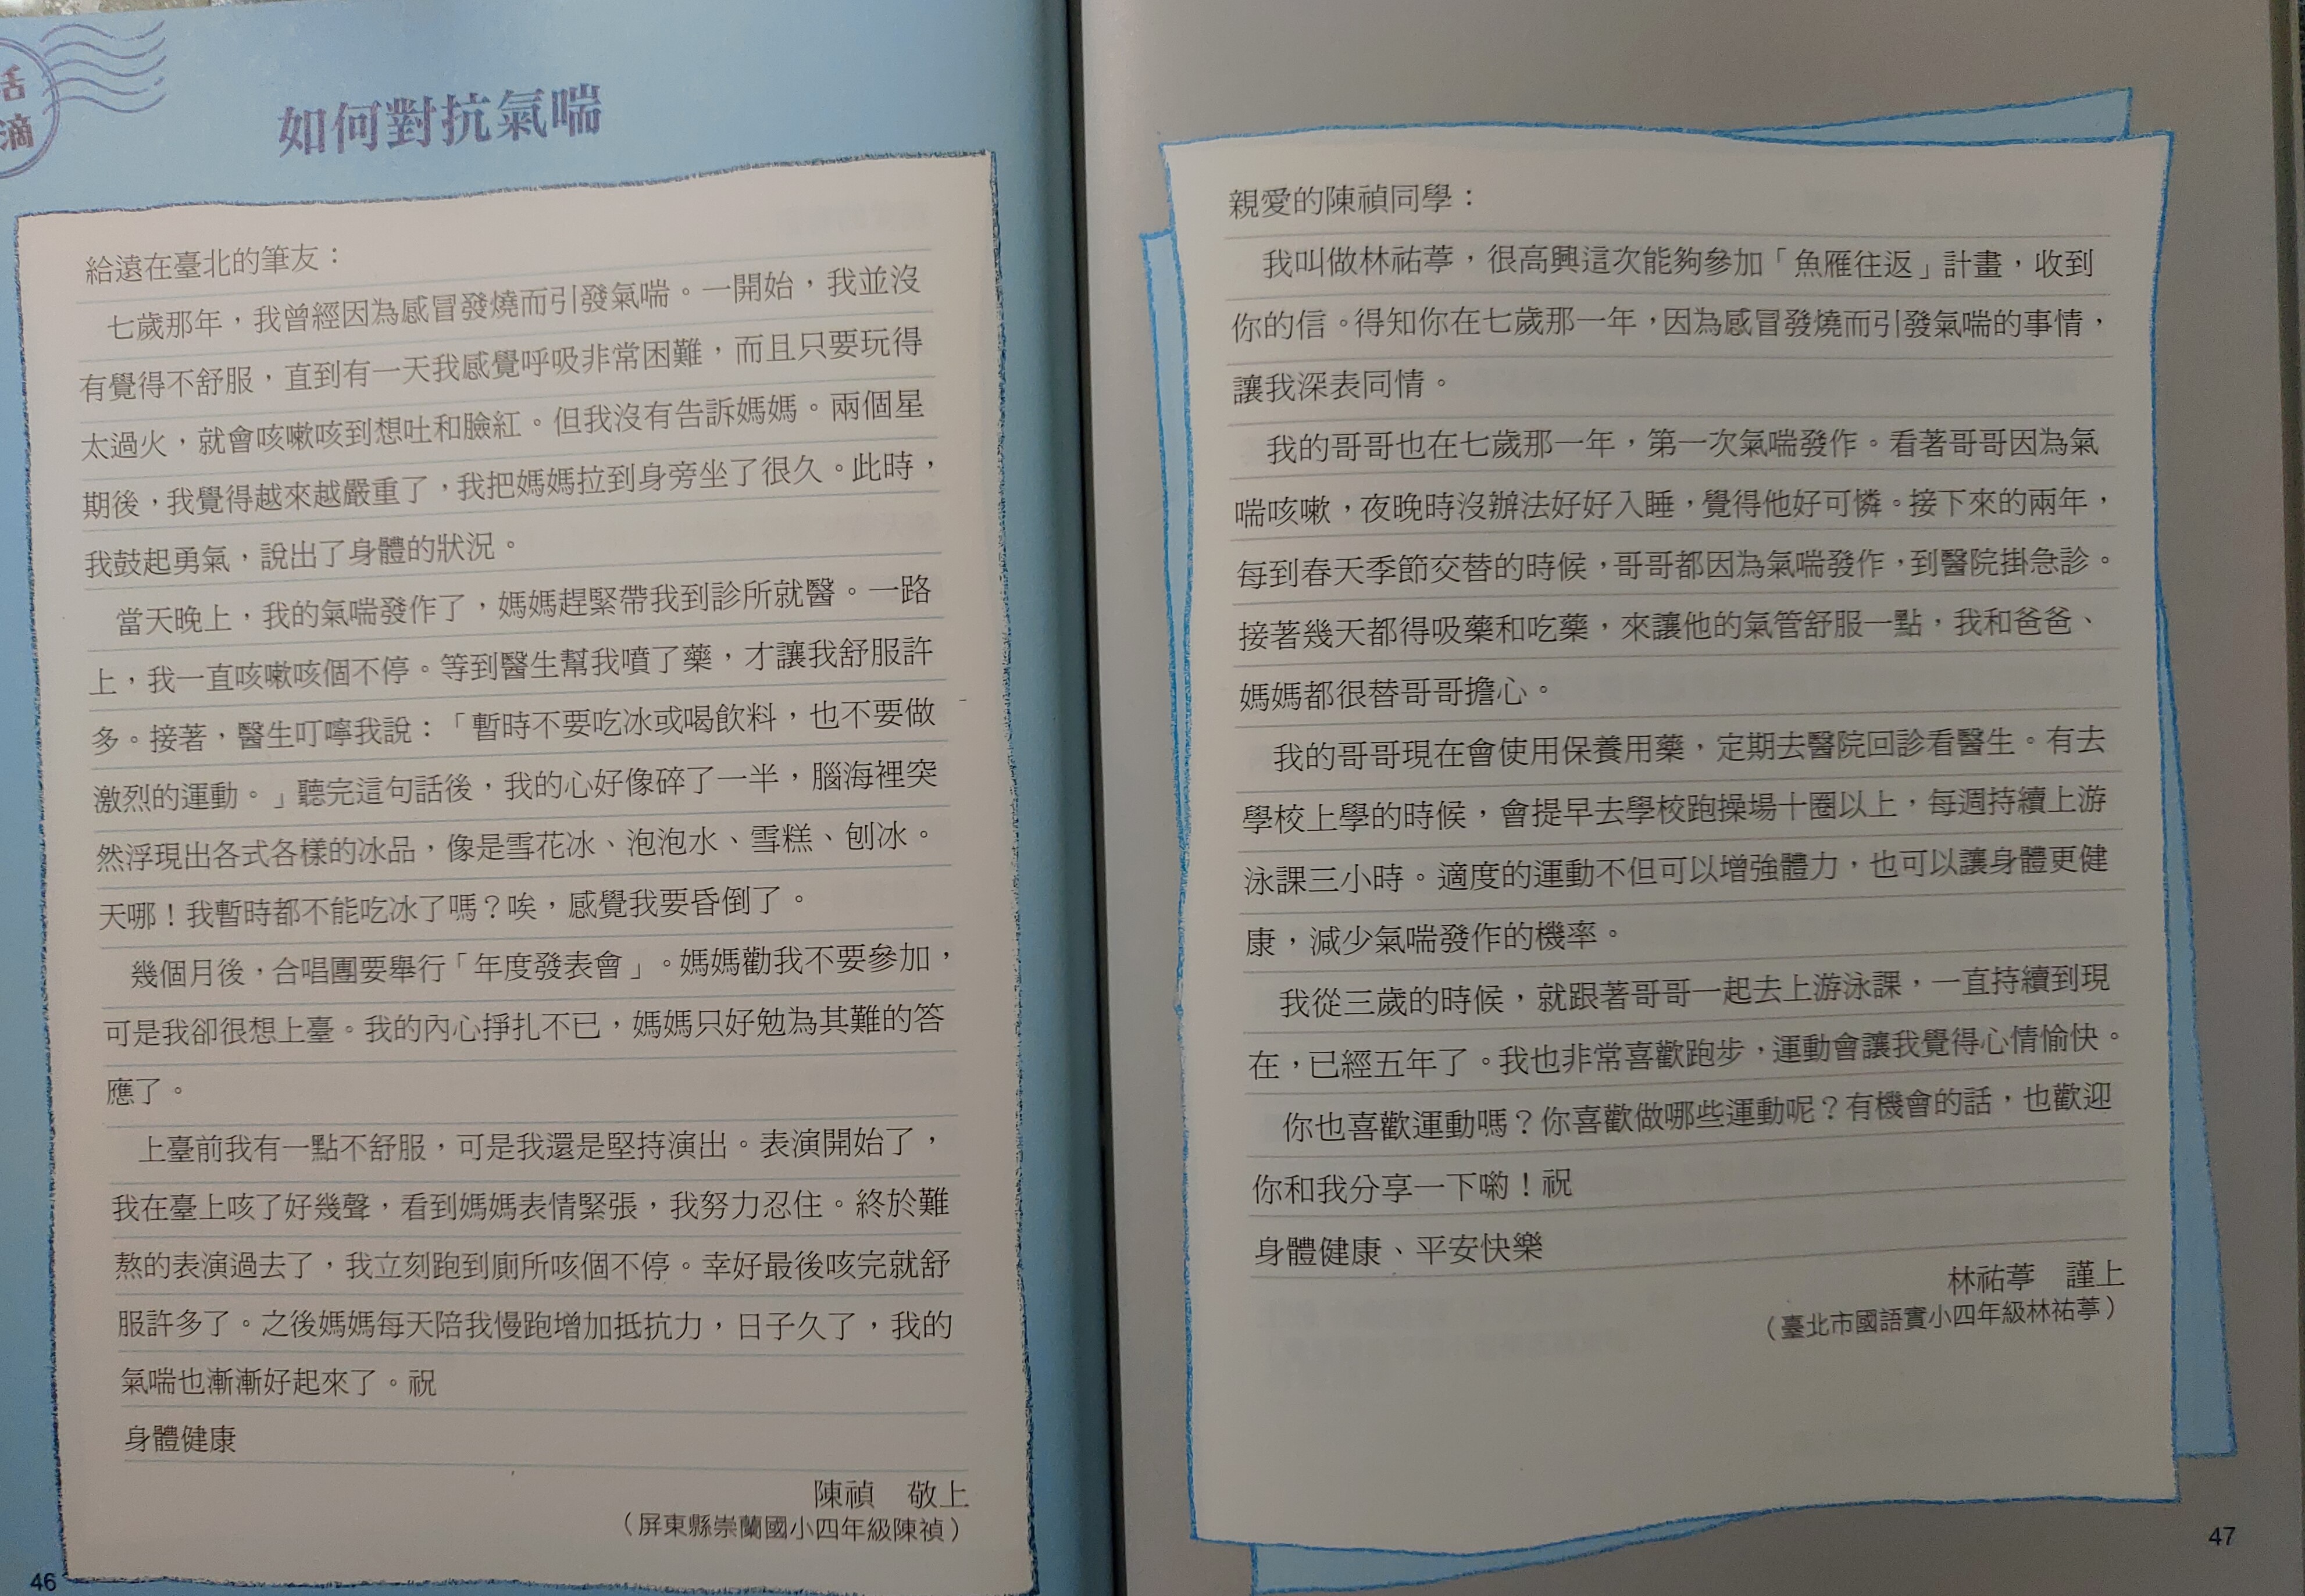 活
滴
如何對抗氣喘
給遠在臺北的筆友：
七歲那年，我曾經因為感冒發燒而引發氣喘。一開始，我並沒
有覺得不舒服，直到有一天我感覺呼吸非常困難，而且只要玩得
太過火，就會咳嗽咳到想吐和臉紅。但我沒有告訴媽媽。兩個星
期後，我覺得越來越嚴重了，我把媽媽拉到身旁坐了很久。此時，
我鼓起勇氣，說出了身體的狀況。
當天晚上，我的氣喘發作了，媽媽趕緊帶我到診所就醫。一路
上，我一直咳嗽咳個不停。等到醫生幫我噴了藥，才讓我舒服許
多。接著，醫生叮嚀我說：「暫時不要吃冰或喝飲料，也不要做
激烈的運動。」聽完這句話後，我的心好像碎了一半，腦海裡突
然浮現出各式各樣的冰品，像是雪花冰、泡泡水、雪糕、刨冰。
天哪！我暫時都不能吃冰了嗎？唉，感覺我要昏倒了。
幾個月後，合唱團要舉行「年度發表會」。媽媽勸我不要參加，
可是我卻很想上臺。我的內心掙扎不已，媽媽只好勉為其難的答
應了。
上臺前我有一點不舒服，可是我還是堅持演出。表演開始了，
我在臺上咳了好幾聲，看到媽媽表情緊張，我努力忍住。終於難
熬的表演過去了，我立刻跑到廁所咳個不停。幸好最後咳完就舒
服許多了。之後媽媽每天陪我慢跑增加抵抗力，日子久了，我的
氣喘也漸漸好起來了。祝
身體健康
陳禎　敬上
（屏東縣崇蘭國小四年級陳禎）
46
親愛的陳禎同學：
我叫做林祐葶，很高興這次能夠參加「魚雁往返」計畫，收到
你的信。得知你在七歲那一年，因為感冒發燒而引發氣喘的事情，
讓我深表同情。
我的哥哥也在七歲那一年，第一次氣喘發作。看著哥哥因為氣
喘咳嗽，夜晚時沒辦法好好入睡，覺得他好可憐。接下來的兩年，
每到春天季節交替的時候，哥哥都因為氣喘發作，到醫院掛急診。
接著幾天都得吸藥和吃藥，來讓他的氣管舒服一點，我和爸爸、
媽媽都很替哥哥擔心。
我的哥哥現在會使用保養用藥，定期去醫院回診看醫生。有去
學校上學的時候，會提早去學校跑操場十圈以上，每週持續上游
泳課三小時。適度的運動不但可以增強體力，也可以讓身體更健
康，減少氣喘發作的機率。
我從三歲的時候，就跟著哥哥一起去上游泳課，一直持續到現
在，已經五年了。我也非常喜歡跑步，運動會讓我覺得心情愉快。
你也喜歡運動嗎？你喜歡做哪些運動呢？有機會的話，也歡迎
你和我分享一下喲！祝
身體健康、平安快樂
林祐葶　謹上
（臺北市國語實小四年級林祐葶）
47